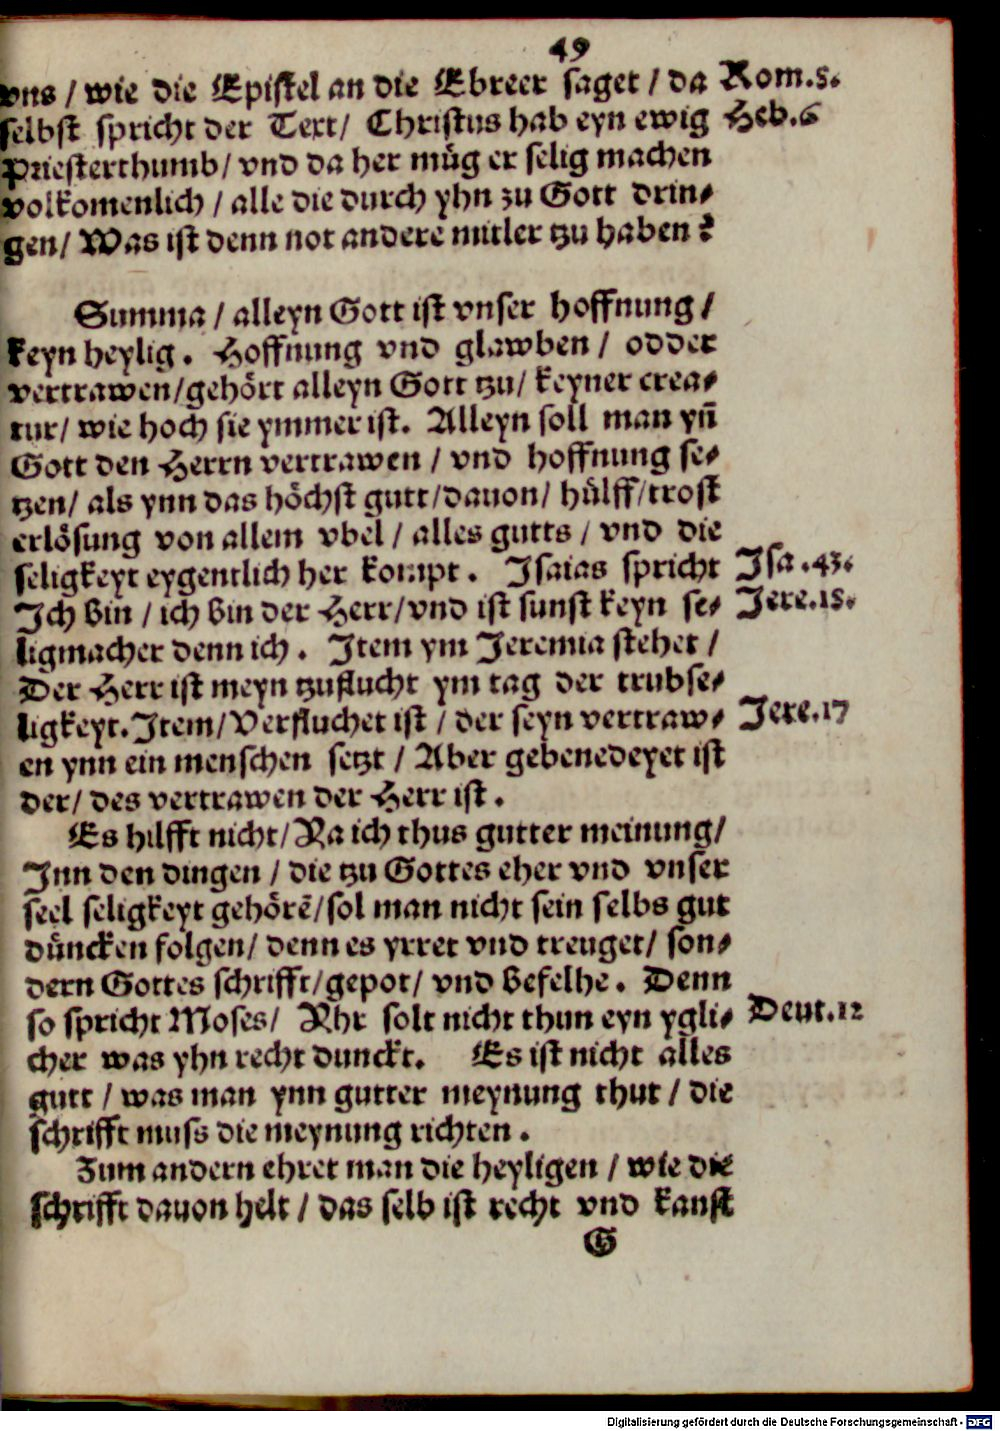 49
vns / wie die Epistel an die Ebreer saget / da Rom.8.
selbst spricht der Text/ Christus hab eyn ewig Heb.6
Priesterthumb/ vnd da her müg er selig machen
volkomenlich / alle die durch yhn zu Gott drin⸗
gen/ Was ist denn not andere mitler tzu haben?
Summa / alleyn Gott ist vnser hoffnung /
keyn heylig. Hoffnung vnd glawben / odder
vertrawen/gehört alleyn Gott tzu/ keyner crea⸗
tur/ wie hoch sie ymmer ist. Alleyn soll man yn̄
Gott den Herrn vertrawen / vnd hoffnung se⸗
tzen/ als ynn das höchst gutt/dauon/ hülff/trost
erlösung von allem vbel / alles gutts / vnd die
seligkeyt eygentlich her kompt. Isaias spricht Isa.43.
Ich bin / ich bin der Herr/vnd ist sunst keyn se⸗ Jere.15.
ligmacher denn ich. Item ym Jeremia stehet /
Der Herr ist meyn tzuflucht ym tag der trubse⸗
ligkeyt. Item/ Verfluchet ist / der seyn vertraw⸗ Jere.17
en ynn ein menschen setzt / Aber gebenedeyet ist
der/ des vertrawen der Herr ist.
Es hilfft nicht/ Ra ich thus gutter meinung/
Inn den dingen / die tzu Gottes eher vnd vnser
seel seligkeyt gehörē/sol man nicht sein selbs gut
düncken folgen/ denn es yrret vnd treuget/ son⸗
dern Gottes schrifft/gepot/ vnd befelhe. Denn
so spricht Moses/ Rhr solt nicht thun eyn ygli⸗ Deut.12
cher was yhn recht dunckt. Es ist nicht alles
gutt / was man ynn gutter meynung thut / die
schrifft muss die meynung richten.
Zum andern ehret man die heyligen / wie die
schrifft dauon helt / das selb ist recht vnd kanst
G
Digitalisierung gefördert durch die Deutsche Forschungsgemeinschaft - DFG